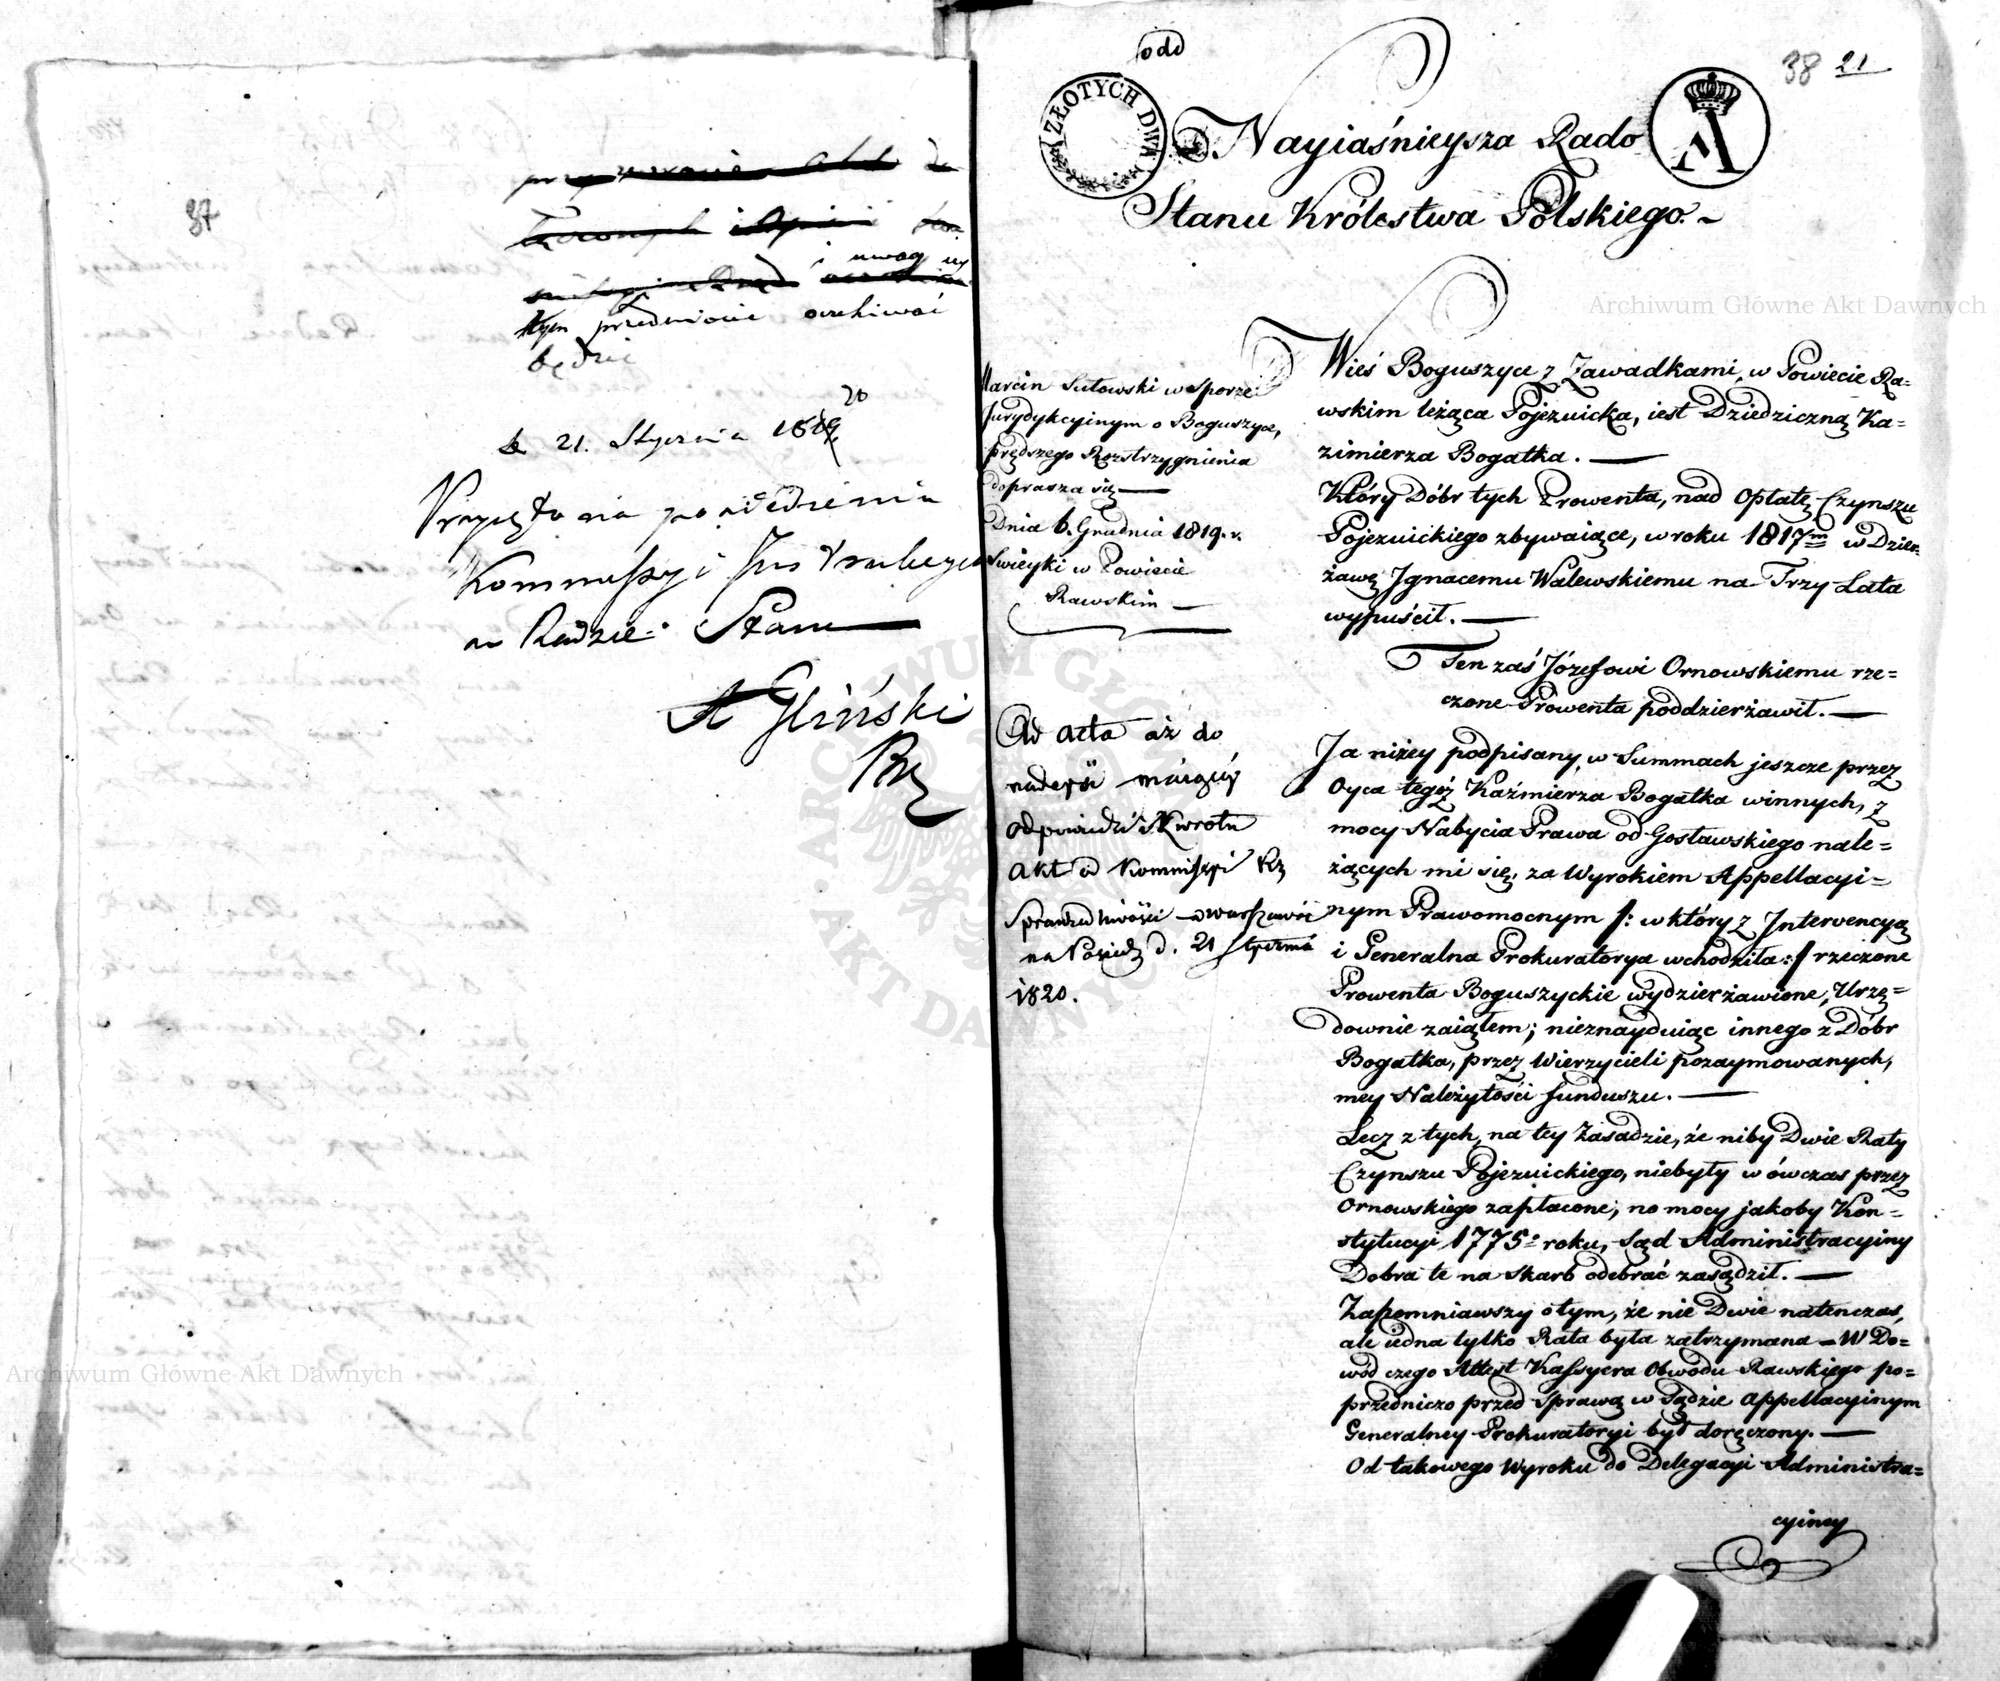 37
i uwag w
tym przedmiocie oczekiwać
będzie
d 21. Stycznia 1819
20
Przyięto na posiedzeniu
Kommissyi Instrukcyi
w Radzie Stanu
A Gliński
odd
38 21
ZŁOTYCH DWA
A
Nayiaśnieysza Rado
Stanu Królestwa Polskiego. ~
Marcin Sutowski w Sporze
Jurydykcyinym o Boguszyce,
prędszego Rozstrzygnienia
doprasza się —
Dnia 6. Grudnia 1819. r.
Swieyki w Powiecie
Rawskim —
Ad acta aż do
nadeyść maiącéy
odpowiedzi i zwrotu
akt od Kommissyi Rz
Sprawiedliwości w Warszawie
na Posiedz d. 21 Stycznia
1820.
Wieś Boguszyce z Zawadkami, w Powiecie Ra=
wskim leżąca Pojezuicka, iest Dziedziczną Ka=
zimierza Bogatka. —
Który Dóbr tych Prowenta, nad Opłatę Czynszu
Pojezuickiego zbywaiące, w roku 1817m w Dzier=
żawę Jgnacemu Walewskiemu na Trzy Lata
wypuścił. —
Ten zaś Józefowi Ornowskiemu rze=
czone Prowenta poddzierżawił. —
Ja niżey podpisany, w Summach jeszcze przez
Oyca tegóż Kaźmierza Bogatka winnych, z
mocy Nabycia Prawa od Gosławskiego nale=
żących mi się, za Wyrokiem Appellacyi=
nym Prawomocnym /: w który z Jntervencyą
i Generalna Prokuratorya wchodziła :/ rzeczone
Prowenta Boguszyckie wydzierżawione, Urzę=
downie zaiąłem; nieznayduiąc innego z Dóbr
Bogatka, przez Wierzycieli pozaymowanych,
mey Należytości funduszu. —
Lecz z tych, na tey Zasadzie, że niby Dwie Raty
Czynszu Pojezuickiego, niebyły w ówczas przez
Ornowskiego zapłacone, no mocy jakoby Kon=
stytucyi 1775o roku, Sąd Administracyiny
Dobra te na Skarb odebrać zasądził. —
Zapomniawszy o tym, że nie Dwie natenczas,
ale iedna tylko Rata była zatrzymana — W Do=
wód czego Attest Kassyera Obwodu Rawskiego po=
przedniczo przed Sprawą w Sądzie Appellacyinym
Generalney Prokuratoryi był doręczony. —
Od takowego Wyroku do Delegacyi Administra=
cyiney
Archiwum Główne Akt Dawnych
Archiwum Główne Akt Dawnych
ARCHIWUM GŁÓWNE AKT DAWNYCH